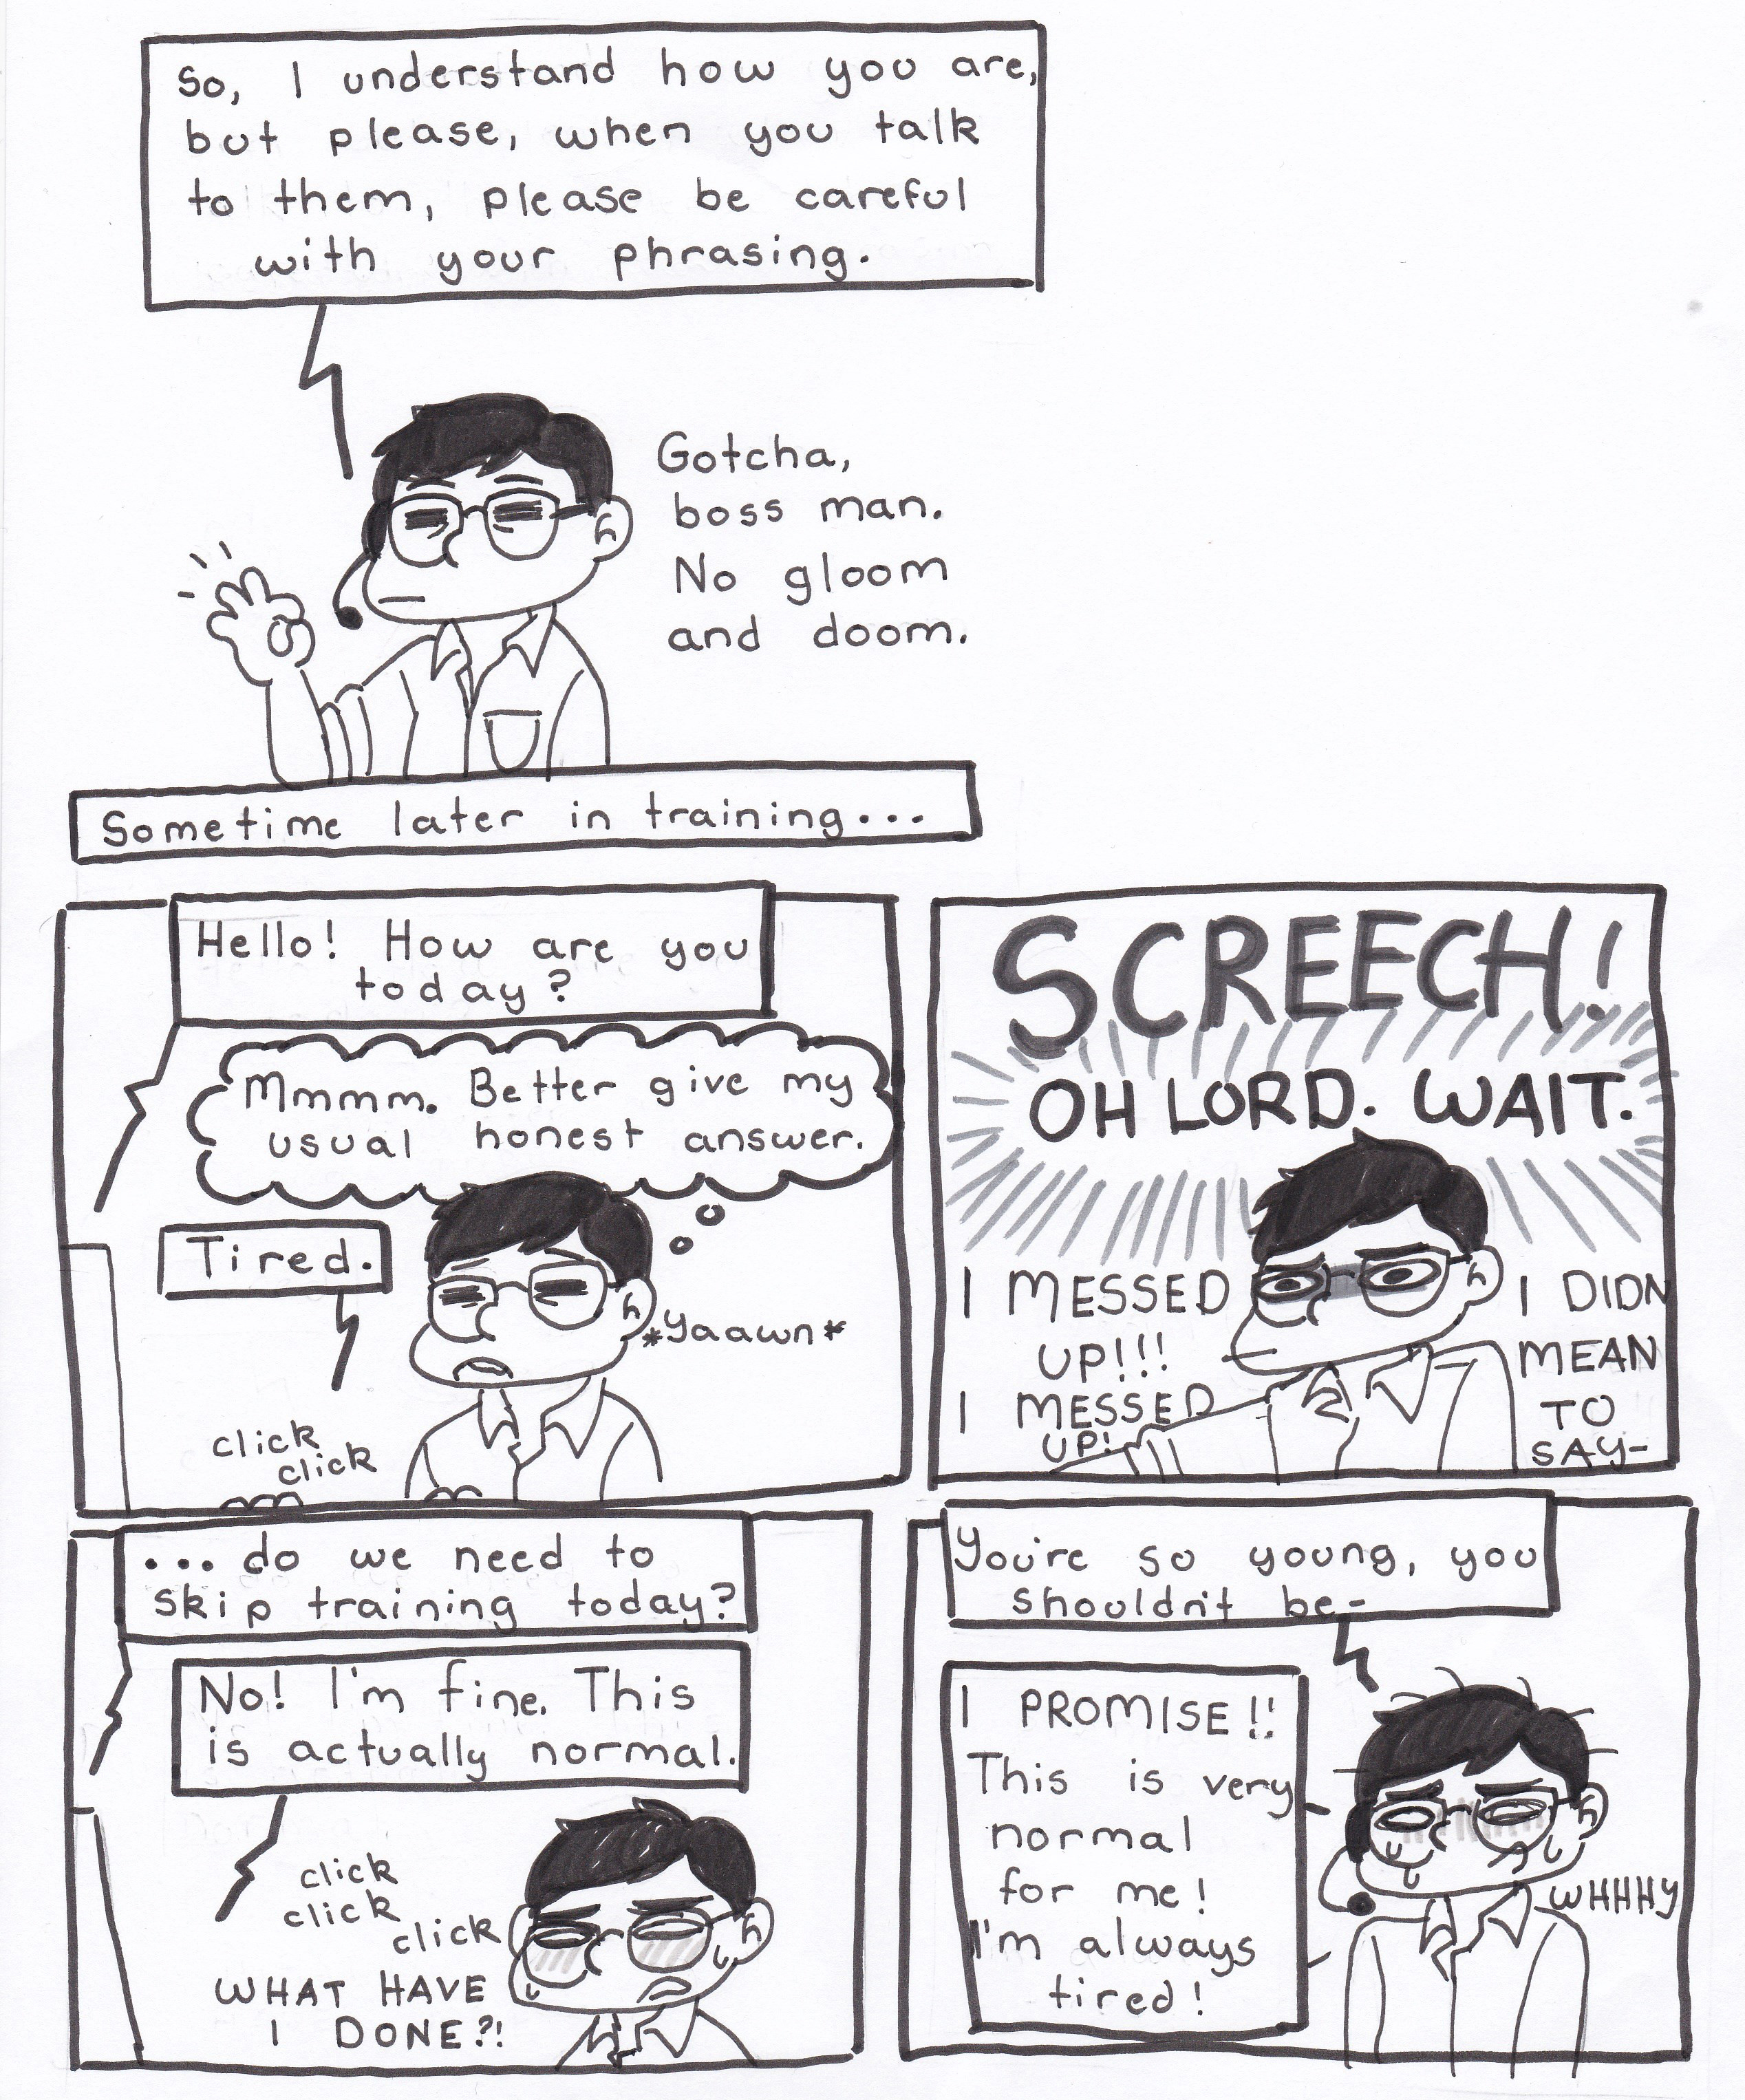 So, I understand how you are,
but please, when you talk
to them, please be careful
with your phrasing.
Gotcha,
boss man.
No gloom
and doom.
Sometime later in training...
Hello! How are you
today?
Mmmm. Better give my
usual honest answer.
Tired.
*yaawn*
click
click
SCREECH!
OH LORD. WAIT.
I MESSED
UP!!!
I MESSED
UP!
I DIDN
MEAN
TO
SAY-
... do we need to
skip training today?
No! I'm fine. This
is actually normal.
click
click
click
WHAT HAVE
I DONE?!
You're so young, you
shouldn't be-
I PROMISE!!
This is very
normal
for me!
I'm always
tired!
WHHHY